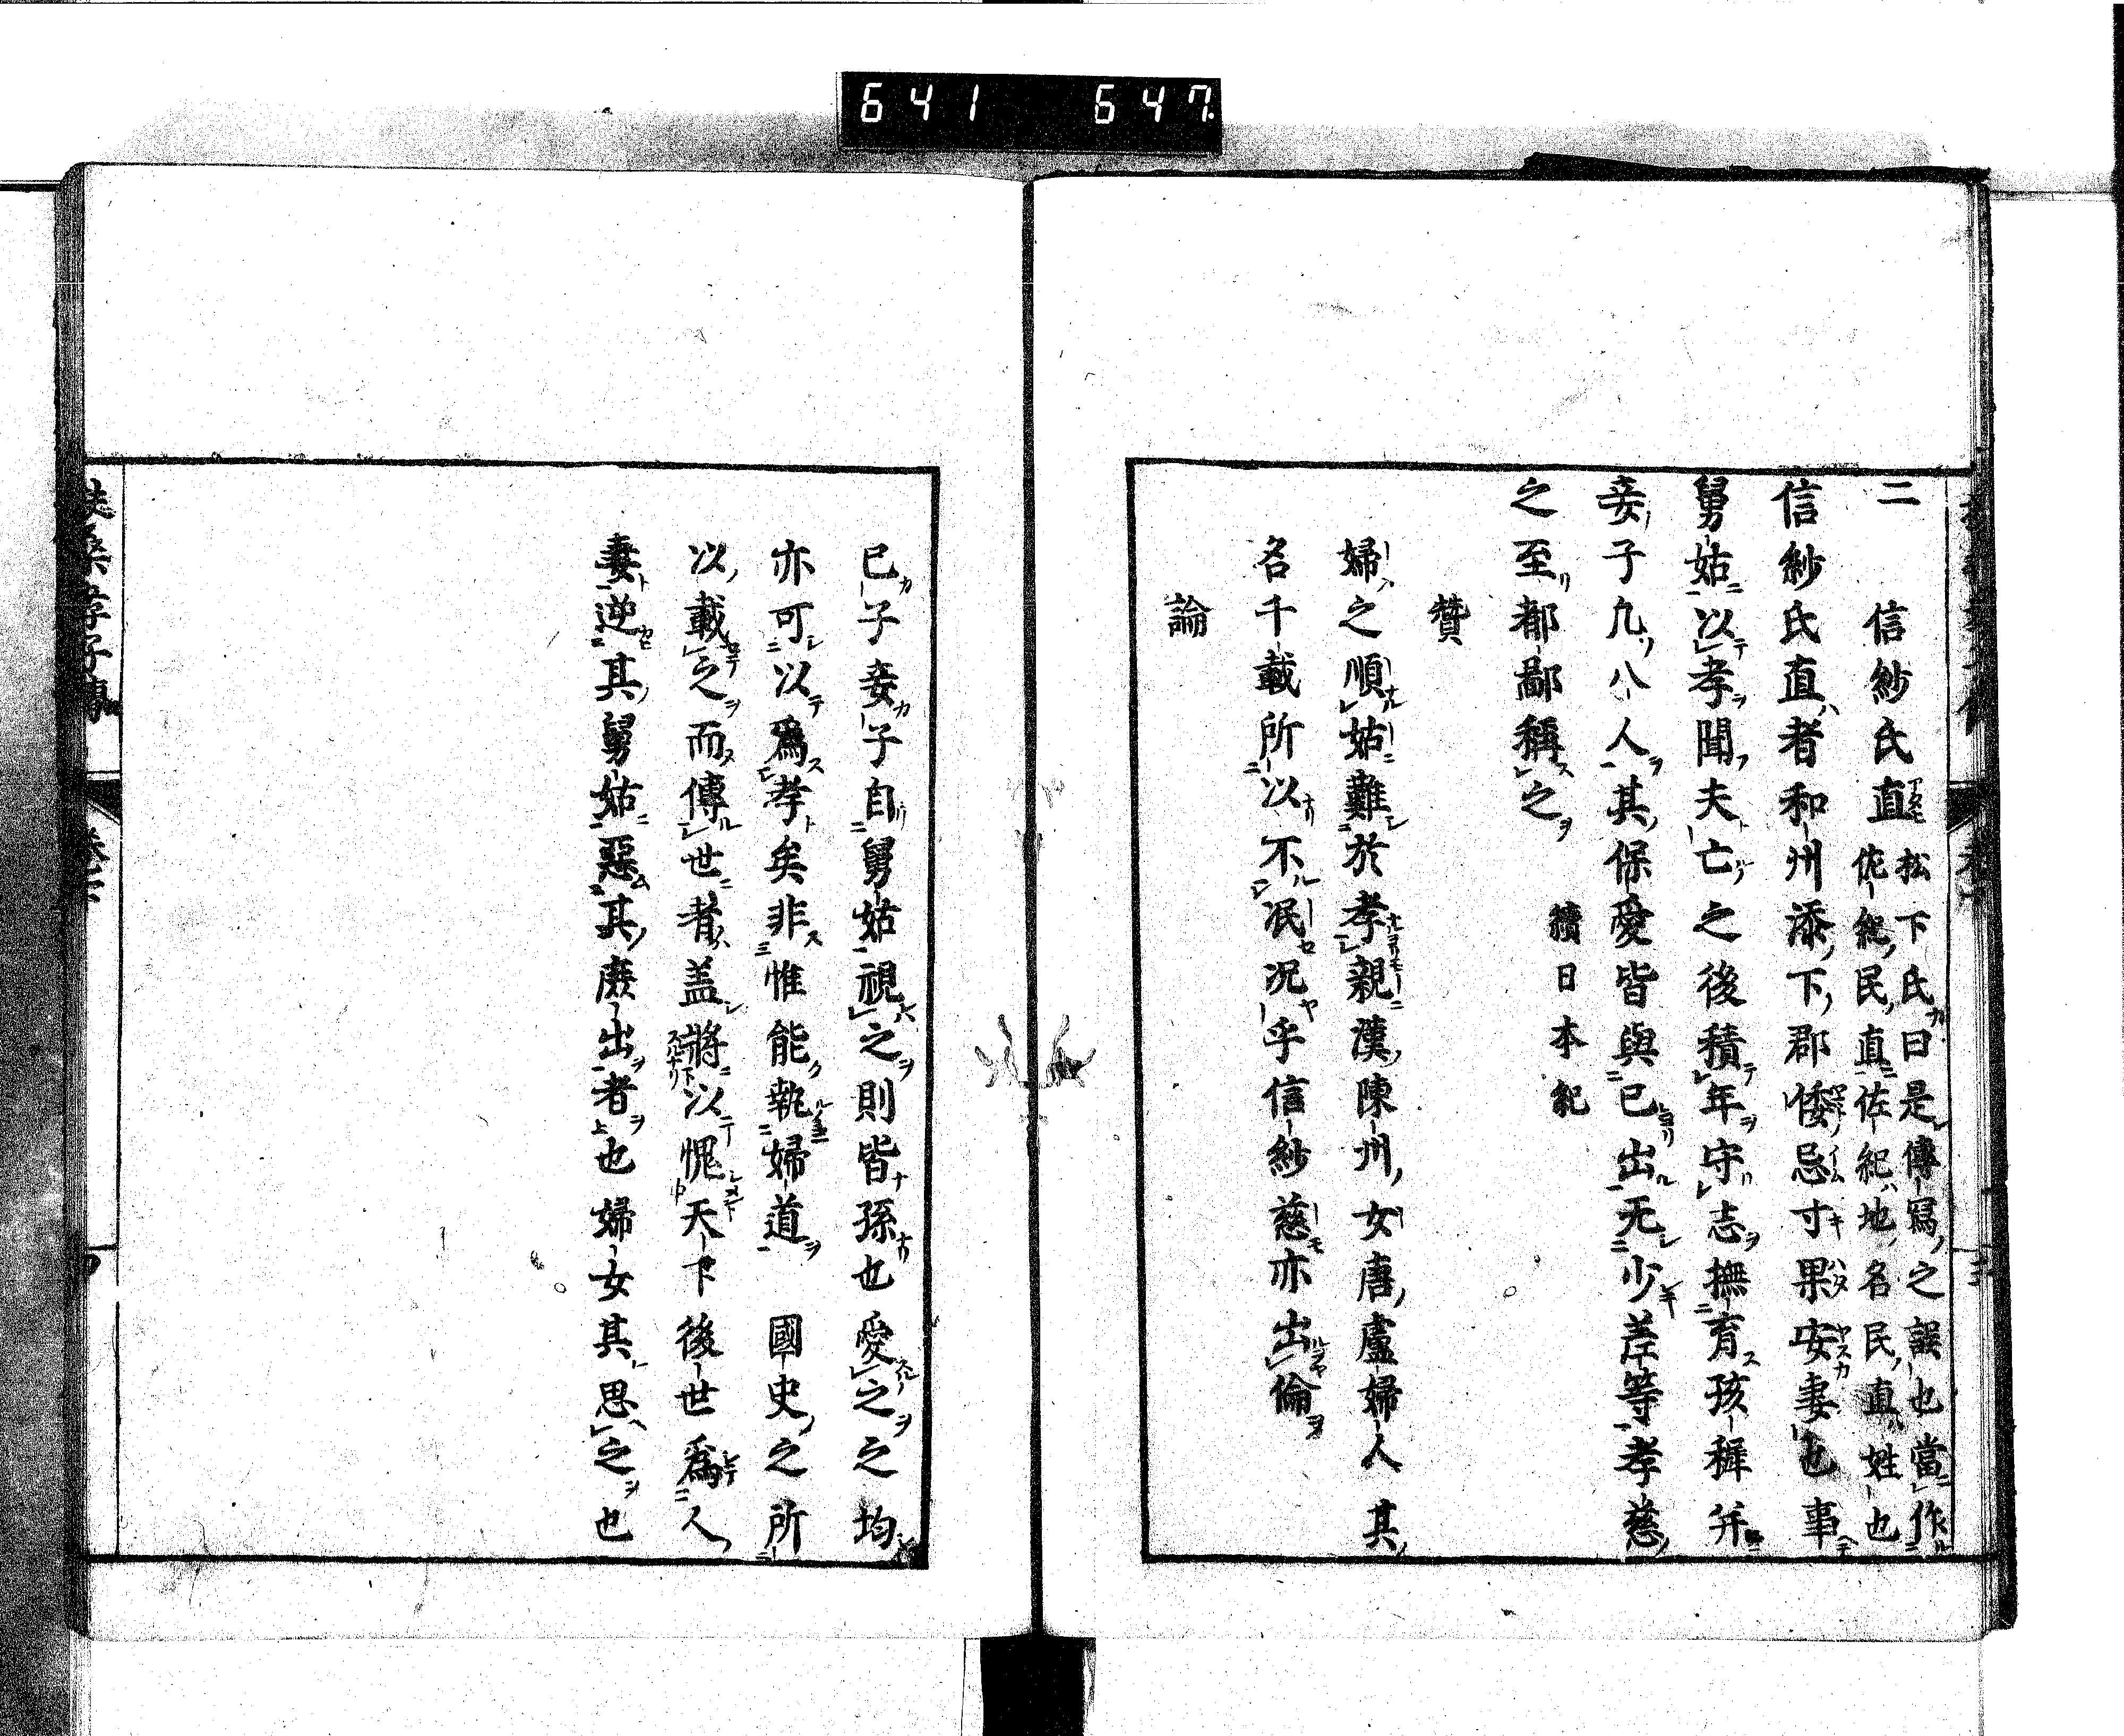 641 647
二 信紗氏直 松下氏曰是傳寫之誤也當作
佐紀民直佐紀地名民直姓也
信紗氏直者和州添下郡倭忌寸果安妻也事
舅姑以孝聞夫亡之後積年守志撫育孩穉并
妾子凢八人其保愛皆與已出无少差等孝慈
之至都鄙稱之 續日本紀
贊
婦之順姑難於孝親漢陳州女唐盧婦人其
名千載所以不泯况乎信紗慈亦出倫
論
已子妾子自舅姑視之則皆孫也愛之之均
亦可以爲孝矣非惟能執婦道 國史之所
以載之而傳世者盖將以愧天下後世爲人
妻逆其舅姑惡其庶出者也婦女其思之也
扶桑孝子傳